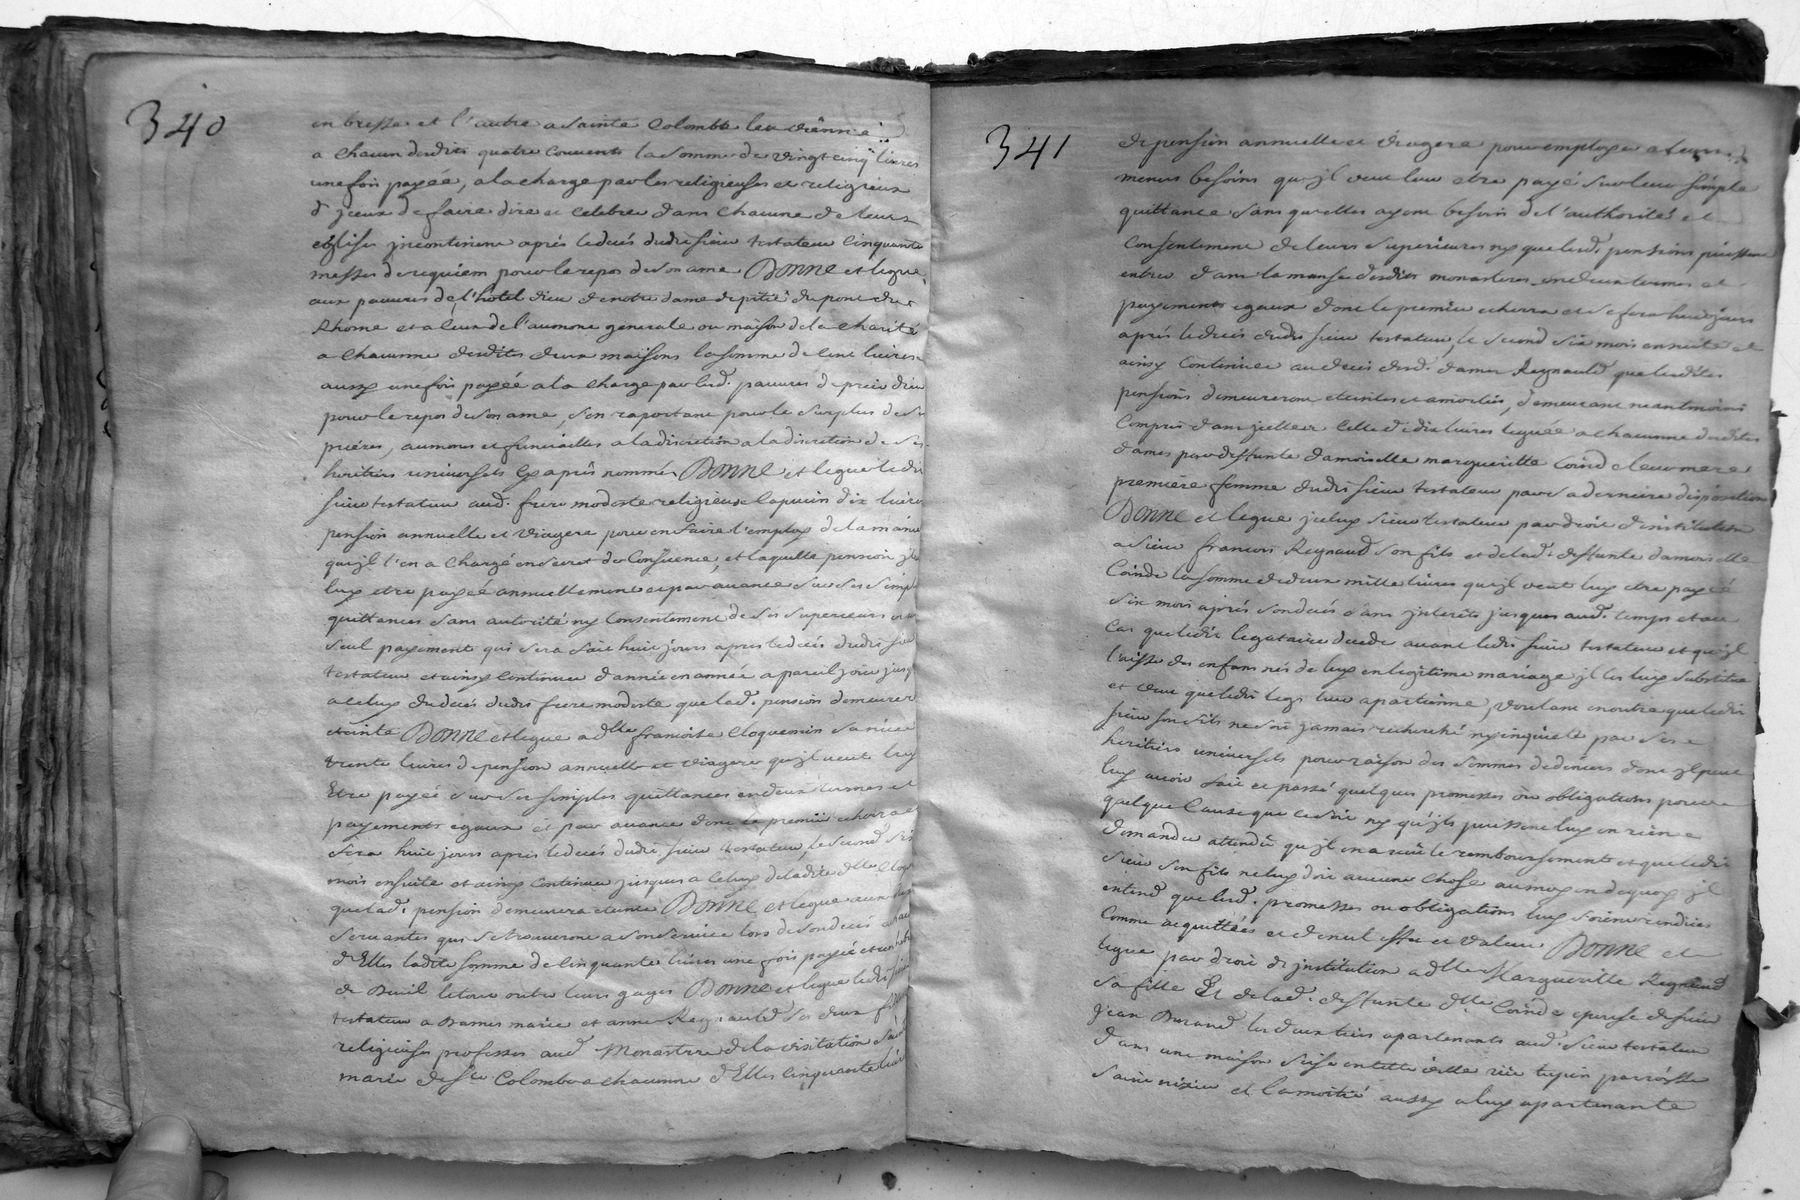 340
en bresse et l'autre a Sainte Colombe les vienne
a chacun desdits quatre couvents la somme de vingt cinq livres
une fois payée, a la charge par les religieuses et religieux
d'jceux de faire dire et celebrer dans chacune de leurs
eglises jncontinent aprés le decés dudit sieur testateur cinquante
messes de requiem pour le repos de son ame Donne et legue
aux pauvres de l'hotel dieu de notre dame de pitié du pont du
Rhone et a ceux de l'aumone generale ou maison de la charité
a chacunne desdites deux maisons la somme de cent livres
aussy une fois payée a la charge par lesd. pauvres de prier dieu
pour le repos de son ame, s'en raportant pour le surplus de ses
priéres, aumones et funerailles a la discretion a la discretion de ses
heritiers universels cy aprés nommés Donne et legue ledit
sieur testateur aud. frere modeste religieux capucin dix livres
pension annuelle et viagere pour en faire l'employ de la maniere
qu'jl l'en a chargé en secret de conscience, et laquelle pension jl
luy etre payée annuellement et par avance sur ses simples
quittances sans autorité ny consentement de ses superieurs en un
seul payement qui sera fait huit jours apres le decés dudit sieur
testateur et ainsy continuer d'année en année a pareil jour jusq
a celuy du decés dudit frere modeste que lad. pension demeurer
eteinte Donne et legue a dlle francoise Cloquemin sa niece
trente livres de pension annuelle et viagere qu'jl veut luy
Etre payée sur ses simples quittances en deux termes et
payements egaux et par avance dont le premier echerra et
sera huit jours apres le decés dudit sieur testateur, le second six
mois ensuite et ainsy continuer jusques a celuy de ladite dlle Cloq
que lad. pension demeurera eteinte Donne et legue aux
servantes qui se trouveront a son service lors de son decés a chac
d'Elles ladite somme de cinquante livres une fois payée et un habit
de Deuil le tout outre leurs gages Donne et legue ledit sieur
testateur a Dames marie et anne Reynauld ses deux filles
religieuses professes aud. Monastere de la visitation Sainte
marie de Ste Colombe a chacunne d'Elles cinquante livres
341
de pension annuelle et viagere pour employer a leurs
menus besoins qu'jl veut leur etre payé sur leur simple
quittance sans qu'elles ayent besoin de l'authorité et
consentement de leurs superieures ny que lesd. pensions puissent
entrer dans la manse desdits monasteres en deux termes et
payements egaux dont le premier echerra et se fera huit jours
aprés le decés dudit sieur testateur, le second six mois ensuite et
ainsy continuer au decés desd. dames Reynauld, que lesdites
pensions demeureront eteintes et amorties, demeurant neantmoins
compris dans jcelles celle de dix livres leguée a chacunne desdites
dames par deffunte damoiselle margueritte Coinde leur mere
premiére femme dudit sieur testateur par sa derniere disposition
Donne et legue jceluy sieur testateur par droit d'institution
a sieur francois Reynaud son fils et de lad. deffunte damoiselle
Coinde la somme de deux mille livres qu'jl veut luy etre payée
six mois aprés son decés sans jnterêts jusques aud. temps et au
cas que ledit legataire decede avant ledit sieur testateur et qu'jl
laisse des enfans nés de luy en legitime mariage jl les luy substitue
et veut que ledit legs leur apartienne, voulant en outre que ledit
sieur son fils ne soit jamais recherché ny inquieté par ses
heritiers universels pour raison des sommes de deniers dont jl peut
luy avoir fait et passé quelques promesses ou obligations pour
quelque cause que ce soit ny qu'jls puissent luy en rien
demander attendu qu'jl en a reçu le remboursement et que ledit
sieur son fils ne luy doit aucune chose au moyen de quoy jl
entend que lesd. promesses ou obligations luy soient rendües
comme acquittées et de nul effet et valeur Donne et
legue par droit de jnstitution a dlle Margueritte Reynaud
sa fille Et de lad. deffunte dlle Coinde epouse de sieur
jean Durand les deux tiers apartenants aud. sieur testateur
dans une maison sise en cette ville rüe tupin parroisse
saint nizier et la moitié aussy a luy apartenante